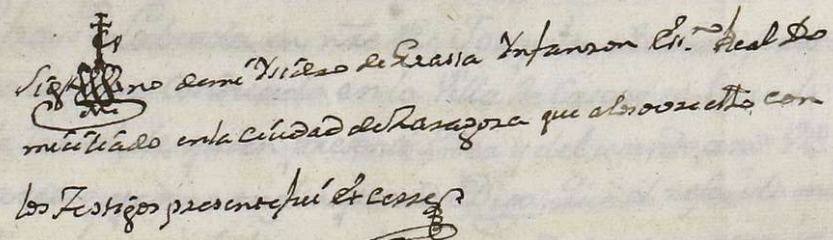 Sig no de mi Ysidro de Grassa Ynfanzon Ess.no Real Do
miciliado en la ciudad de Zaragoza que a lo sovredho con
los Testigos presente fui et cerre